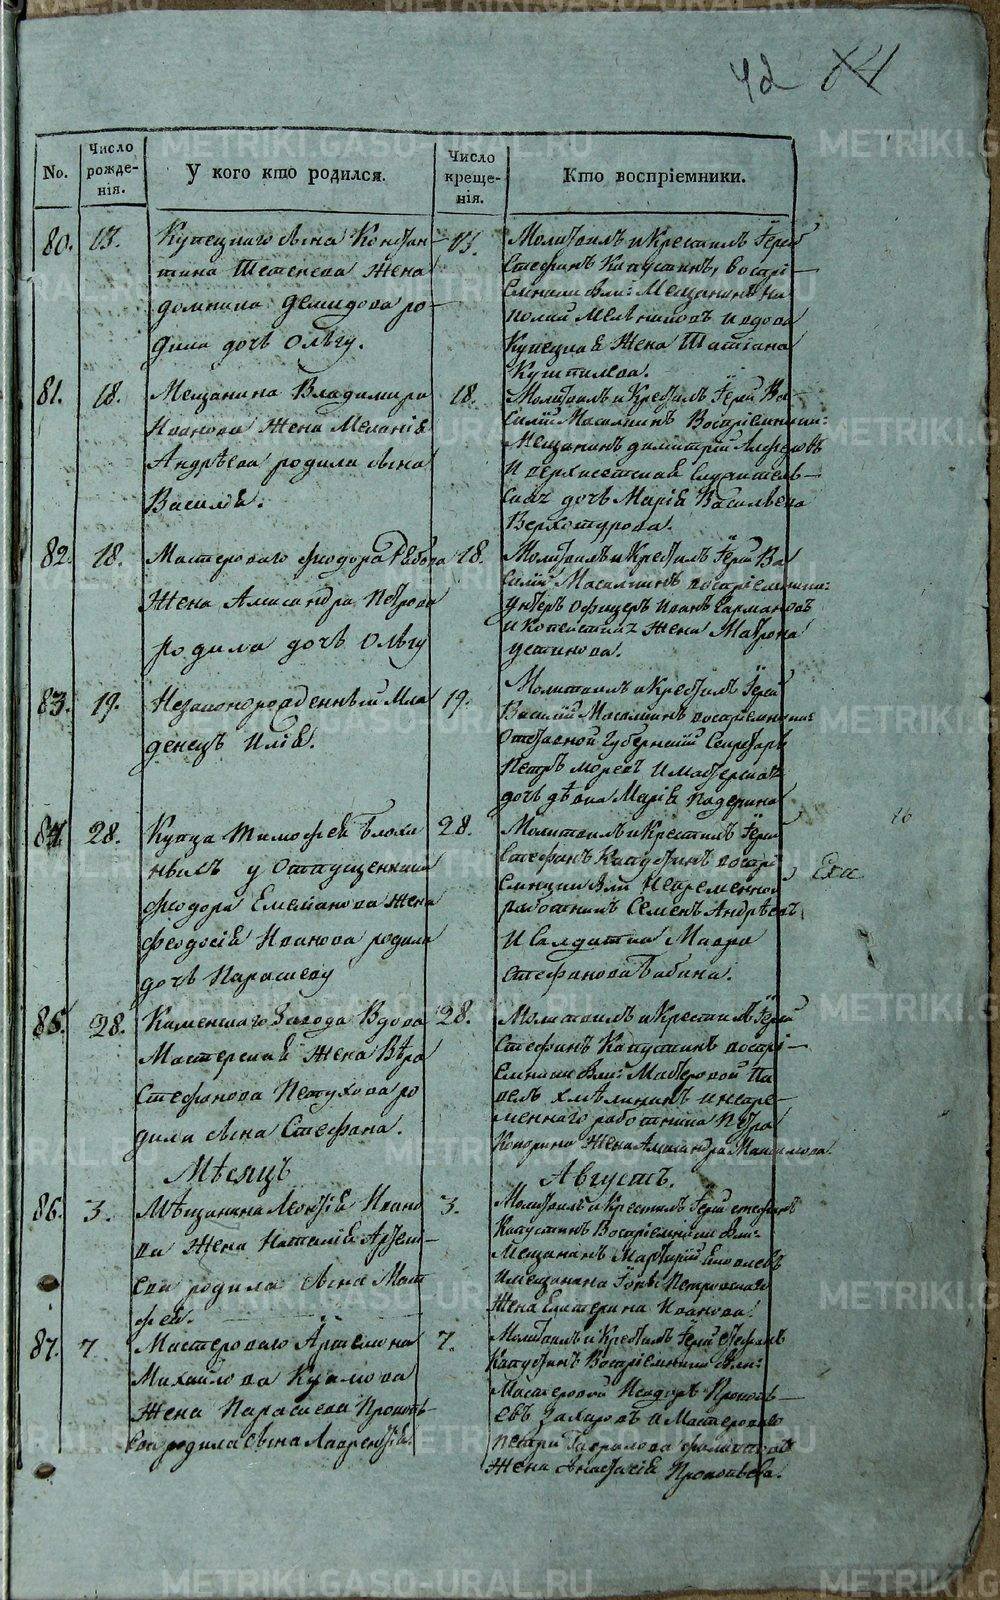 42
No.
Число рожде-нія.
У кого кто родился.
Число креще-нія.
Кто воспріемники.
80. 13.
Купецкаго сына Констан-
тина Шетенева Жена
домнина Демидова ро-
дила дочь Ольгу.
13.
Молитвилъ и Крестилъ Іерей
Стефанъ Капустинъ, воспрі-
емники были: Мещанинъ
Мельниковъ и вдова
Купецкая Жена Татіана
81. 18.
Мещанина Владимира
Иванова Жена Меланія
Андрѣева родила сына
Василія.
18.
Молитвилъ и Крестилъ Іерей Ва-
силій Масалкинъ Воспріемники:
Мещанинъ димитрій Алферовъ
и верхисетская Служитель-
ская дочь Марія Васильева
Верхотурова.
82. 18.
Мастероваго Феодора Рябова
Жена Александра Петрова
родила дочь Ольгу
18.
Молитвилъ и Крестилъ Іерей Ва
силій Масалкинъ воспріемники:
Унтеръ офицеръ Иванъ
и копеистская Жена Матрона
устинова.
83. 19.
Незаконорожденный Мла
денецъ Илія.
19.
Молитвилъ и Крестилъ Іерей
Василій Масалкинъ воспріемники:
Отставной Губернскій Секретарь
Петръ и мастерская
дочь дѣвка Марія Падерина
84. 28.
Купца Тимофея Блохи
ныхъ у Отпущенника
Феодора Емельянова Жена
Феодосія Иванова родила
дочь Парасковію
28.
Молитвилъ и Крестилъ Іерей
Стефанъ Капустинъ воспрі
емники были Непременной
работникъ Семенъ Андрѣевъ
и Салдатка Мавра
Стефанова Бабина.
85. 28.
Каменскаго Завода Вдова
Мастерская Жена Вѣра
Стефанова Петухова ро
дила сына Стефана.
28.
Молитвилъ и Крестилъ Іерей
Стефанъ Капустинъ воспрі-
емники были: Мастеровой Па
велъ Хмѣлининъ и непре-
меннаго работника Петра
Жена Александра Максимова
Мѣсяцъ Августъ.
86. 3.
Мѣщанина Леонтія Ивано
ва Жена Наталія Артем-
ева родила сына Мат
фея.
3.
Молитвилъ и Крестилъ Іерей Стефанъ
Капустинъ Воспріемники были:
Мещанинъ Мартирій
и мещанина Іоны Петровскаго
Жена Екатерина Иванова.
87. 7
Мастероваго Артемона
Михайлова
Жена Парасковія Прокопь-
ева родила сына Лаврентія.
7.
Молитвилъ и Крестилъ Іерей Стефанъ
Капустинъ Воспріемники были:
Мастеровой Исидоръ Прокопь-
евъ Захаровъ и Мастероваго
Петра Гаврилова
Жена Анастасія Прокопьева.
METRIKI.GASO-URAL.RU